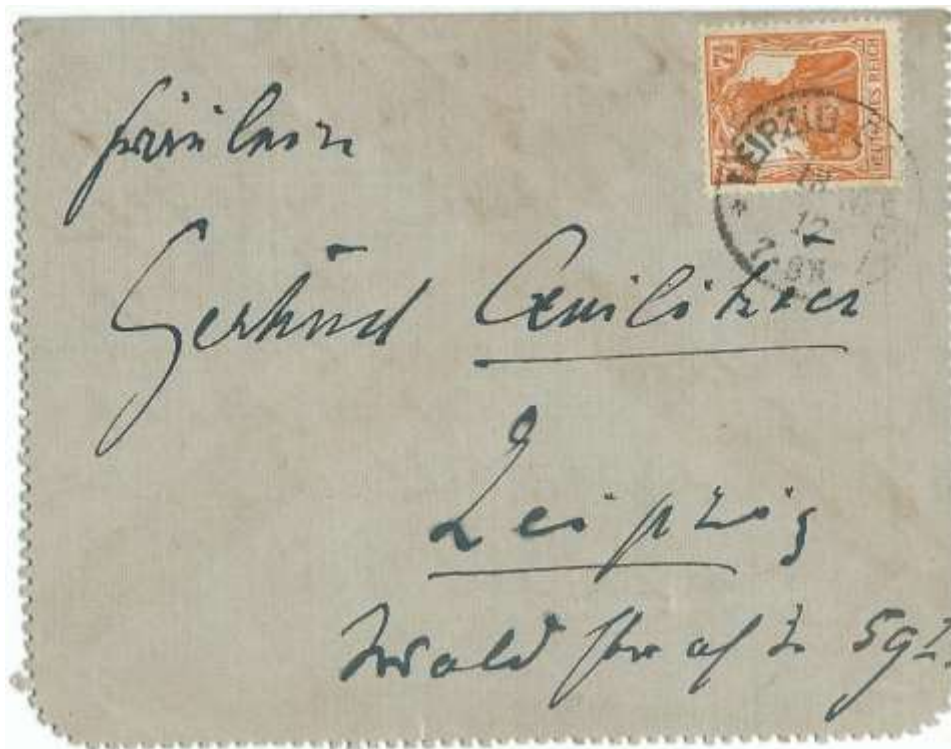 7½
DEUTSCHES REICH
LEIPZIG
12
Fräulein
Gertrud
Leipzig
Waldstraße 59